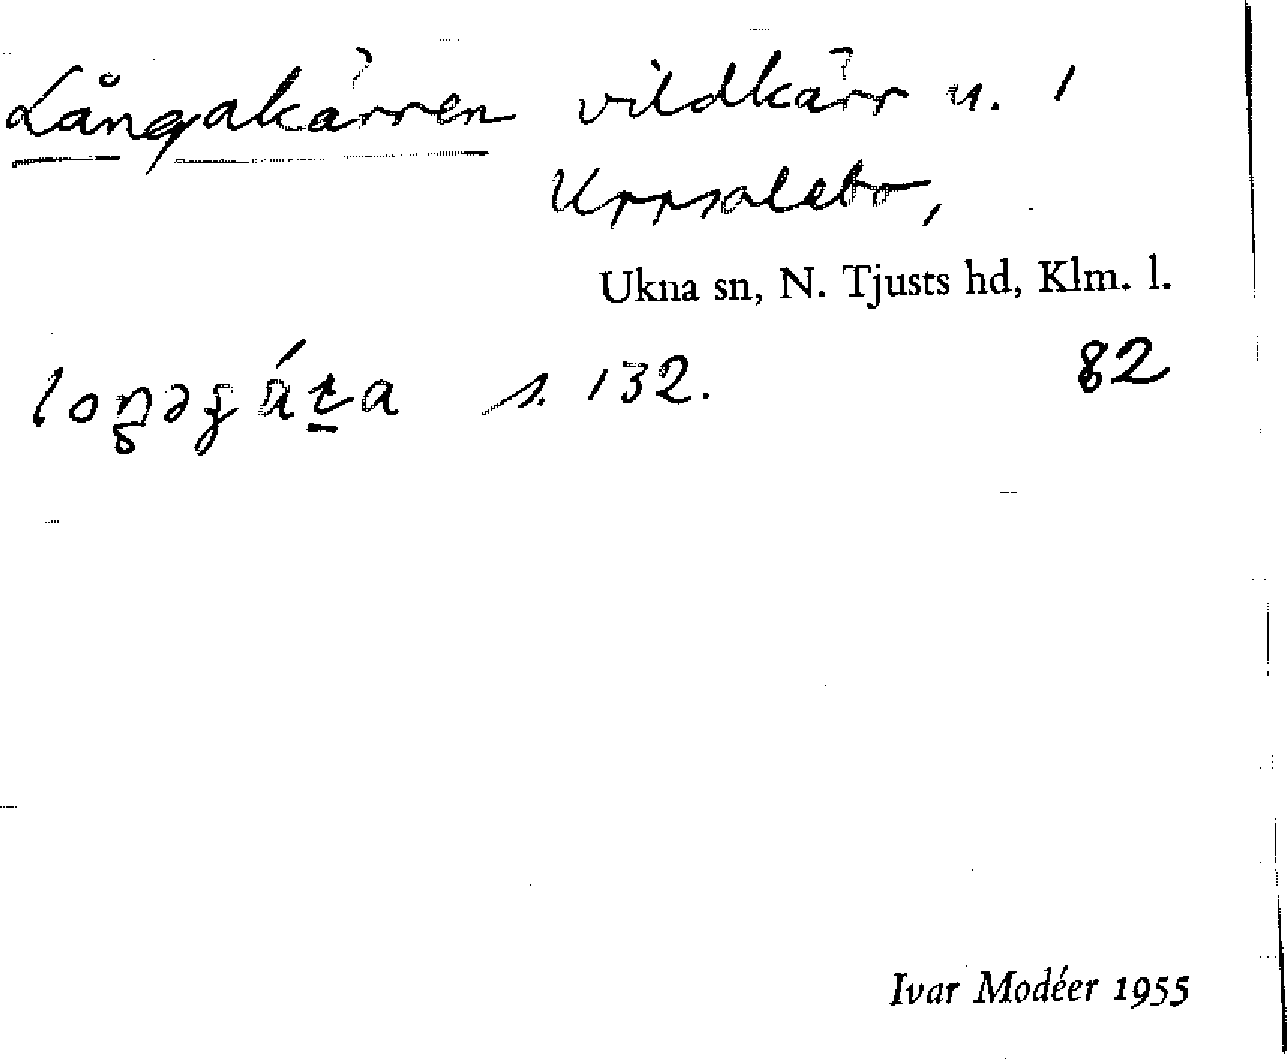 Långakärren vildkärr u. 1
Uppsalebo,
Ukna sn, N. Tjusts hd, Klm. l.
s. 132. 82
Ivar Modéer 1955